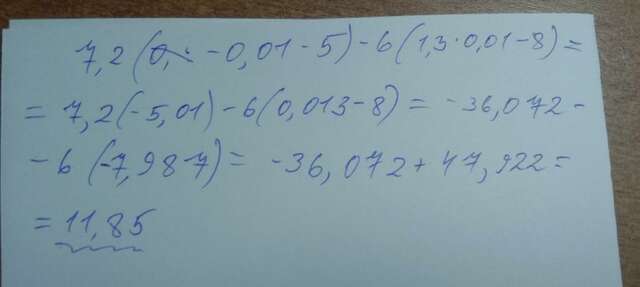 7,2(-0,01-5)-6(1,3·0,01-8)=
=7,2(-5,01)-6(0,013-8)=-36,072-
-6(-7,987)=-36,072+47,922=
=11,85